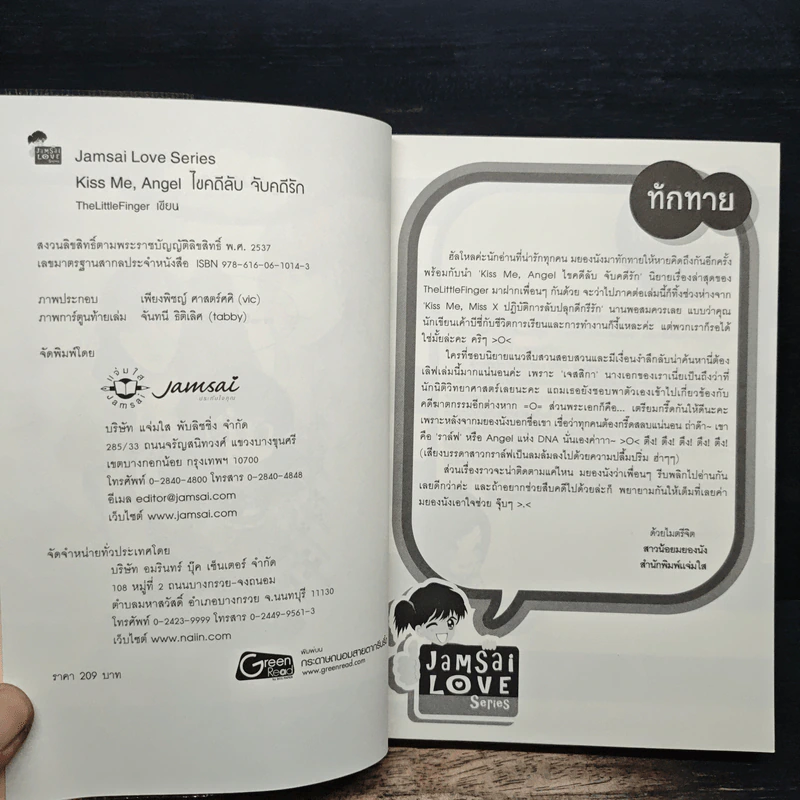 JAMSAI
LOVE
Series
Jamsai Love Series
Kiss Me, Angel ไขคดีลับ จับคดีรัก
TheLittleFinger เขียน
สงวนลิขสิทธิ์ตามพระราชบัญญัติลิขสิทธิ์ พ.ศ. 2537
เลขมาตรฐานสากลประจำหนังสือ ISBN 978-616-06-1014-3
ภาพประกอบ เพียงพิชญ์ ศาสตร์ศศิ (vic)
ภาพการ์ตูนท้ายเล่ม จันทนี ธิติเลิศ (tabby)
จัดพิมพ์โดย
แจ่มใส
Jamsai
Jamsai
บริษัท แจ่มใส พับลิชชิ่ง จำกัด
285/33 ถนนจรัญสนิทวงศ์ แขวงบางขุนศรี
เขตบางกอกน้อย กรุงเทพฯ 10700
โทรศัพท์ 0-2840-4800 โทรสาร 0-2840-4848
อีเมล editor@jamsai.com
เว็บไซต์ www.jamsai.com
จัดจำหน่ายทั่วประเทศโดย
บริษัท อมรินทร์ บุ๊ค เซ็นเตอร์ จำกัด
108 หมู่ที่ 2 ถนนบางกรวย-จงถนอม
ตำบลมหาสวัสดิ์ อำเภอบางกรวย จ.นนทบุรี 11130
โทรศัพท์ 0-2423-9999 โทรสาร 0-2449-9561-3
เว็บไซต์ www.naiin.com
ราคา 209 บาท
Green
Read
พิมพ์บน
กระดาษถนอมสายตากรีนรีด
www.greenread.com
ทักทาย
ฮัลโหลค่ะนักอ่านที่น่ารักทุกคน มยองนังมาทักทายให้หายคิดถึงกันอีกครั้ง
พร้อมกับนำ 'Kiss Me, Angel ไขคดีลับ จับคดีรัก' นิยายเรื่องล่าสุดของ
TheLittleFinger มาฝากเพื่อนๆ กันด้วย จะว่าไปภาคต่อเล่มนี้ก็ทิ้งช่วงห่างจาก
'Kiss Me, Miss X ปฏิบัติการลับปลุกดีกรีรัก' นานพอสมควรเลย แบบว่าคุณ
นักเขียนเค้าบิซี่กับชีวิตการเรียนและการทำงานก็งี้แหละค่ะ แต่พวกเราก็รอได้
ใช่มั้ยล่ะคะ คริๆ >O<
ใครที่ชอบนิยายแนวสืบสวนสอบสวนและมีเงื่อนงำลึกลับน่าค้นหานี่ต้อง
เลิฟเล่มนี้มากแน่นอนค่ะ เพราะ 'เจสสิกา' นางเอกของเราเนี่ยเป็นถึงว่าที่
นักนิติวิทยาศาสตร์เลยนะคะ แถมเธอยังชอบพาตัวเองเข้าไปเกี่ยวข้องกับ
คดีฆาตกรรมอีกต่างหาก =O= ส่วนพระเอกก็คือ... เตรียมกรี๊ดกันให้ดีนะคะ
เพราะหลังจากมยองนังบอกชื่อเขา เชื่อว่าทุกคนต้องกรี๊ดสลบแน่นอน ถ่าด๊า~ เขา
คือ 'ราล์ฟ' หรือ Angel แห่ง DNA นั่นเองค่าาา~ >O< ตึง! ตึง! ตึง! ตึง! ตึง!
(เสียงบรรดาสาวกราล์ฟเป็นลมล้มลงไปด้วยความปลื้มปริ่ม ฮ่าๆๆ)
ส่วนเรื่องราวจะน่าติดตามแค่ไหน มยองนังว่าเพื่อนๆ รีบพลิกไปอ่านกัน
เลยดีกว่าค่ะ และถ้าอยากช่วยสืบคดีไปด้วยล่ะก็ พยายามกันให้เต็มที่เลยค่า
มยองนังเอาใจช่วย จุ๊บๆ >.<
ด้วยไมตรีจิต
สาวน้อยมยองนัง
สำนักพิมพ์แจ่มใส
JAMSAI
LOVE
Series